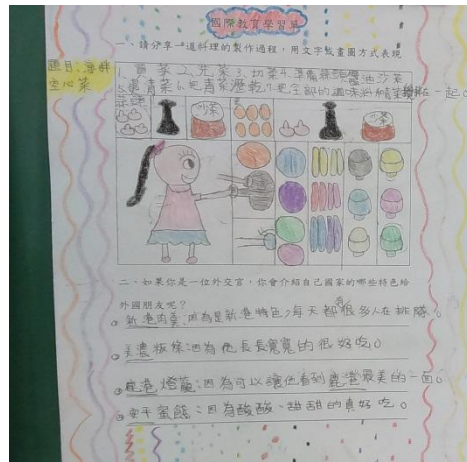 國際教育學習單
一、請分享一道料理的製作過程，用文字或畫圖方式表現
題目：海鮮
空心菜
1、買菜2、洗菜3、切菜4、準備蒜頭醬油沙茶
5、燙青菜6、把青菜瀝乾7、把全部的調味料和菜攪拌在一起。
沙茶
沙茶
二、如果你是一位外交官，你會介紹自己國家的哪些特色給
外國朋友呢？
新港肉羹：因為是新港特色，每天都有很多人在排隊。
美濃粄條：因為他長長寬寬的很好吃。
鹿港燈籠：因為可以讓他看到鹿港最美的一面。
安平蜜餞：因為酸酸、甜甜的真好吃。